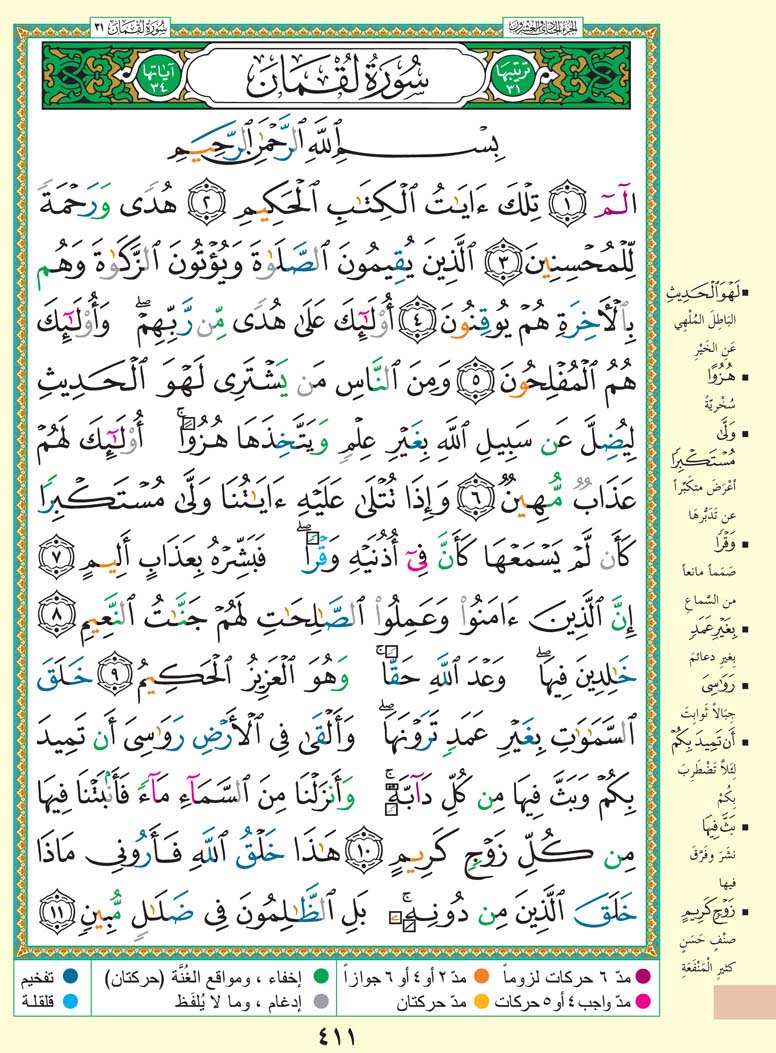 الجزء الحادي والعشرون
سُورَةُ لُقْمَان ٣١
ترتيبها ٣١
سُورَةُ لُقْمَانَ
آياتها ٣٤
بِسْمِ ٱللَّهِ ٱلرَّحْمَٰنِ ٱلرَّحِيمِ
الٓمٓ ١ تِلْكَ ءَايَٰتُ ٱلْكِتَٰبِ ٱلْحَكِيمِ ٢ هُدًى وَرَحْمَةً
لِّلْمُحْسِنِينَ ٣ ٱلَّذِينَ يُقِيمُونَ ٱلصَّلَوٰةَ وَيُؤْتُونَ ٱلزَّكَوٰةَ وَهُم
بِٱلْأَخِرَةِ هُمْ يُوقِنُونَ ٤ أُو۟لَٰٓئِكَ عَلَىٰ هُدًى مِّن رَّبِّهِمْ ۖ وَأُو۟لَٰٓئِكَ
هُمُ ٱلْمُفْلِحُونَ ٥ وَمِنَ ٱلنَّاسِ مَن يَشْتَرِى لَهْوَ ٱلْحَدِيثِ
لِيُضِلَّ عَن سَبِيلِ ٱللَّهِ بِغَيْرِ عِلْمٍ وَيَتَّخِذَهَا هُزُوًا ۚ أُو۟لَٰٓئِكَ لَهُمْ
عَذَابٌ مُّهِينٌ ٦ وَإِذَا تُتْلَىٰ عَلَيْهِ ءَايَٰتُنَا وَلَّىٰ مُسْتَكْبِرًا
كَأَن لَّمْ يَسْمَعْهَا كَأَنَّ فِىٓ أُذُنَيْهِ وَقْرًا ۖ فَبَشِّرْهُ بِعَذَابٍ أَلِيمٍ ٧
إِنَّ ٱلَّذِينَ ءَامَنُوا۟ وَعَمِلُوا۟ ٱلصَّٰلِحَٰتِ لَهُمْ جَنَّٰتُ ٱلنَّعِيمِ ٨
خَٰلِدِينَ فِيهَا ۖ وَعْدَ ٱللَّهِ حَقًّا ۚ وَهُوَ ٱلْعَزِيزُ ٱلْحَكِيمُ ٩ خَلَقَ
ٱلسَّمَٰوَٰتِ بِغَيْرِ عَمَدٍ تَرَوْنَهَا ۖ وَأَلْقَىٰ فِى ٱلْأَرْضِ رَوَٰسِىَ أَن تَمِيدَ
بِكُمْ وَبَثَّ فِيهَا مِن كُلِّ دَآبَّةٍ ۚ وَأَنزَلْنَا مِنَ ٱلسَّمَآءِ مَآءً فَأَنۢبَتْنَا فِيهَا
مِن كُلِّ زَوْجٍ كَرِيمٍ ١٠ هَٰذَا خَلْقُ ٱللَّهِ فَأَرُونِى مَاذَا
خَلَقَ ٱلَّذِينَ مِن دُونِهِۦ ۚ بَلِ ٱلظَّٰلِمُونَ فِى ضَلَٰلٍ مُّبِينٍ ١١
▪ لَهْوَ ٱلْحَدِيثِ
البَاطِلَ المُلْهِي
عَنِ الخَيْرِ
▪ هُزُوًا
سُخْرِيَّةً
▪ وَلَّىٰ
مُسْتَكْبِرًا
أعْرَضَ متكبّراً
عن تَدَبُّرِهَا
▪ وَقْرًا
صَمَماً مانعاً
من السَّماعِ
▪ بِغَيْرِ عَمَدٍ
بغير دعائم
▪ رَوَٰسِىَ
جِبَالاً ثَوابِتَ
▪ أَن تَمِيدَ بِكُمْ
لِئَلاَّ تَضْطَرِبَ
بِكُمْ
▪ بَثَّ فِيهَا
نشرَ وفَرَّقَ
فيها
▪ زَوْجٍ كَرِيمٍ
صنْفٍ حَسَنٍ
كثيرِ الْمَنْفَعَةِ
مدّ ٦ حركات لزوماً مدّ ٢ أو ٤ أو ٦ جوازاً إخفاء ، ومواقع الغُنَّة (حركتان) تفخيم
مدّ واجب ٤ أو ٥ حركات مدّ حركتان إدغام ، وما لا يُلفَظ قلقلة
٤١١